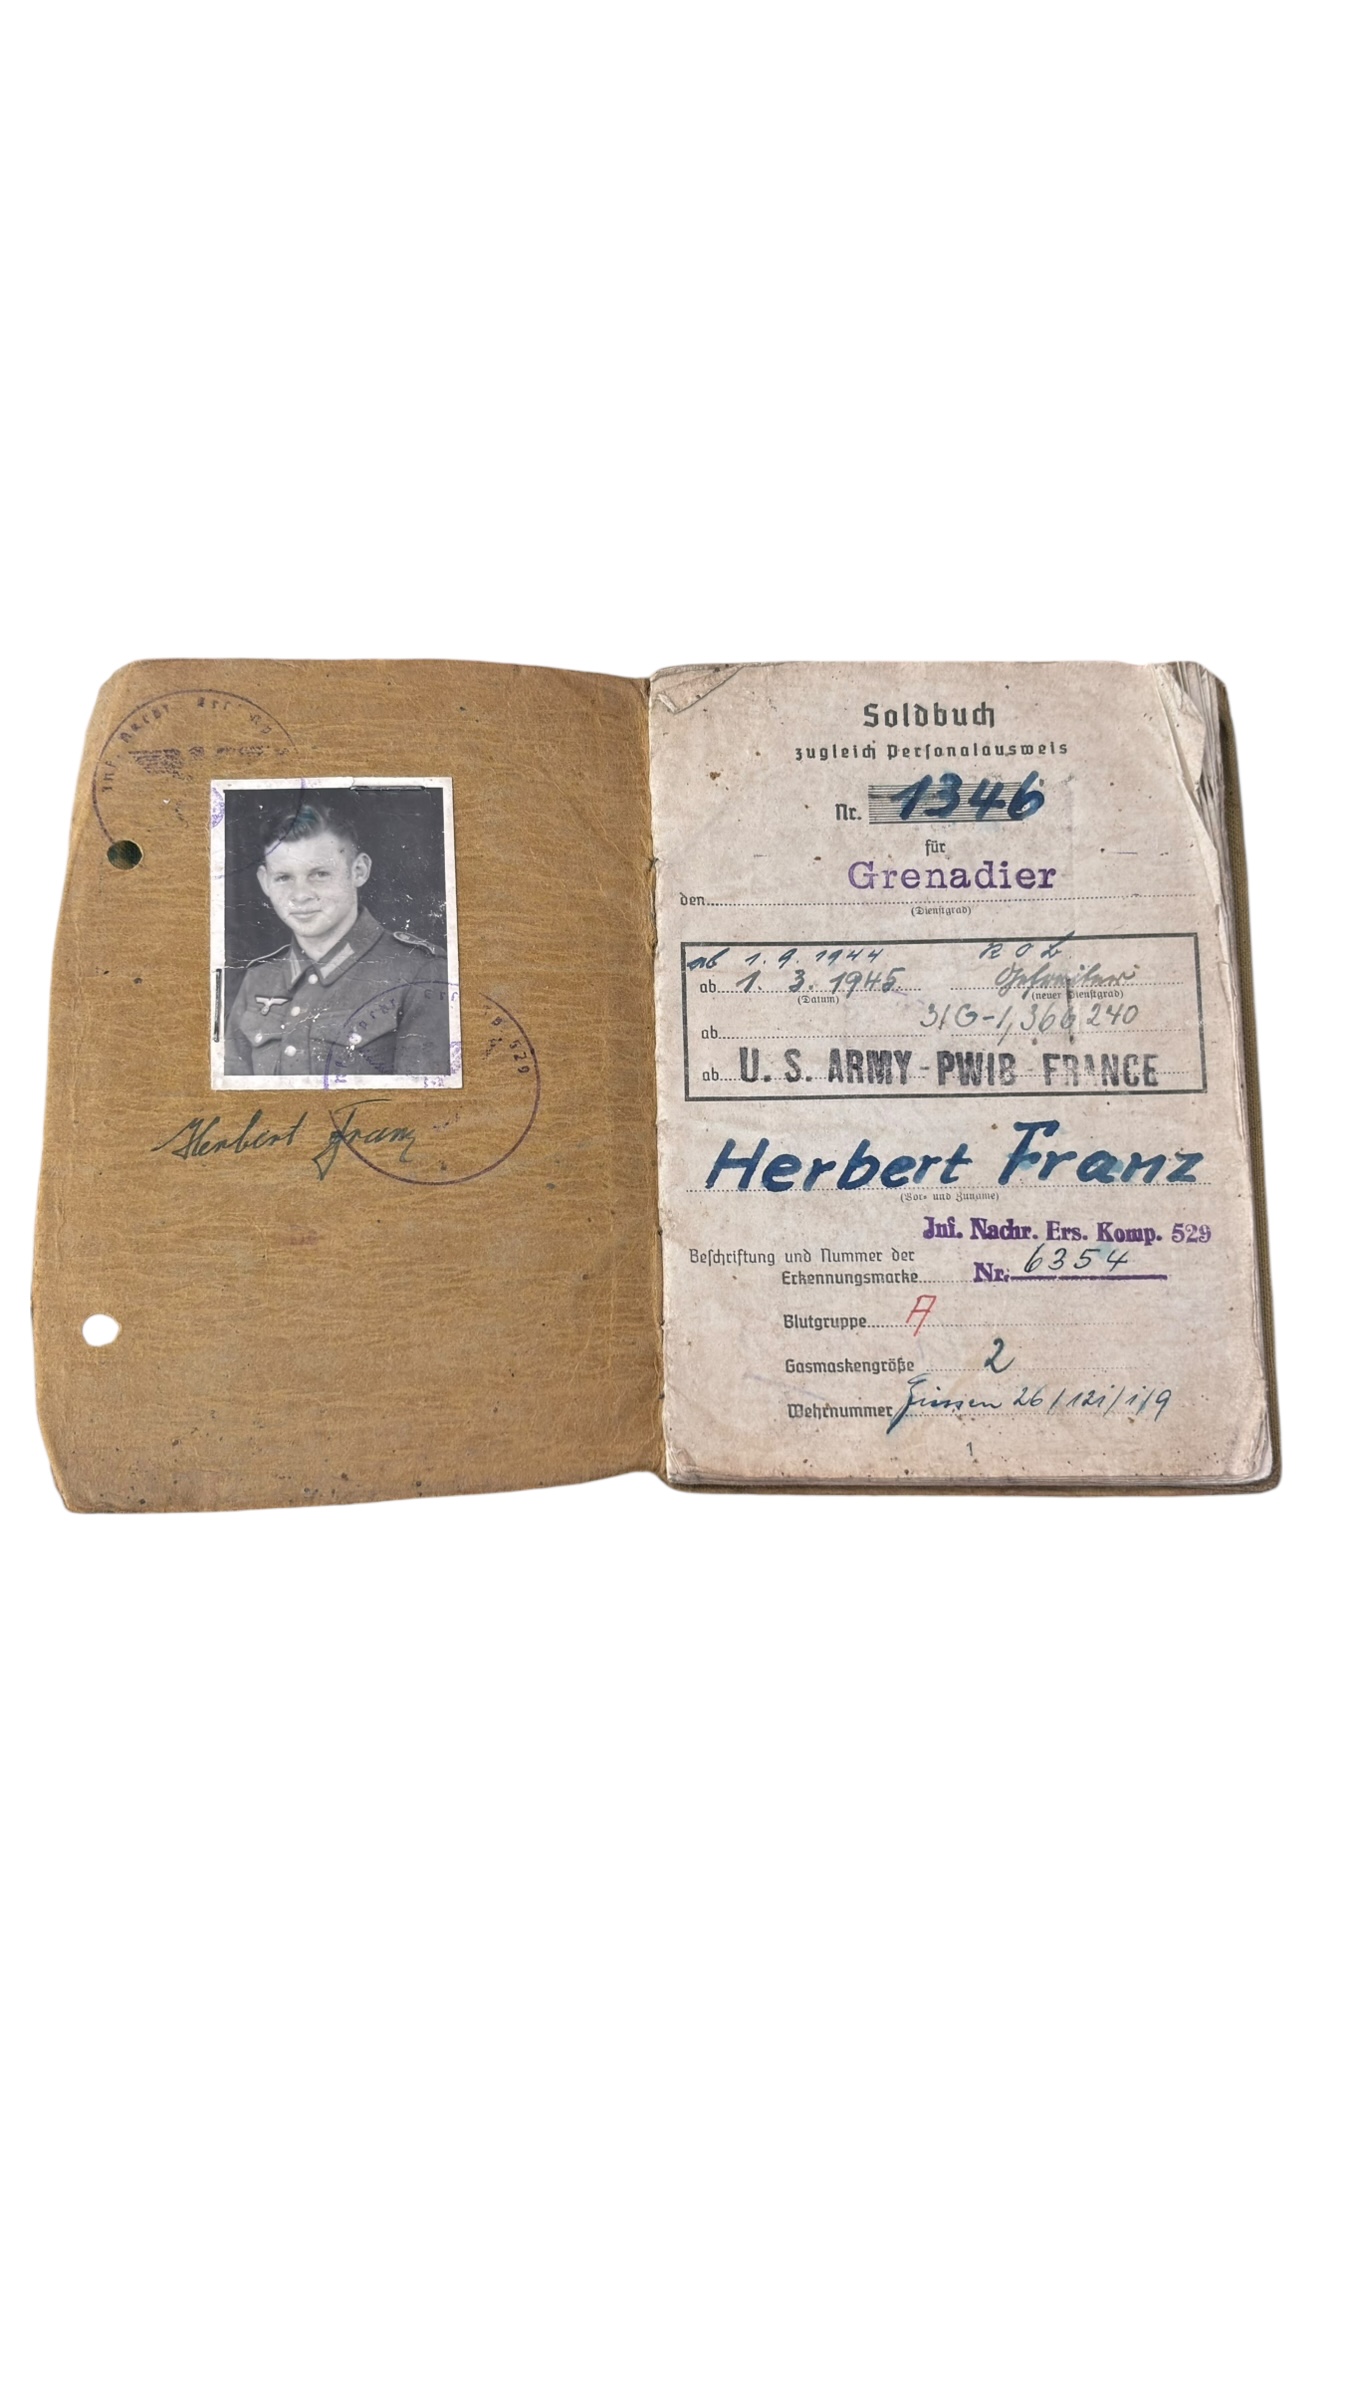 Herbert Franz
529
Soldbuch
zugleich Personalausweis
Nr. 1346
für
den Grenadier
(Dienstgrad)
ab 1. 9. 1944 R O B
ab 1. 3. 1945 Gefreiter
(Datum) (neuer Dienstgrad)
ab 31G-1,366 240
ab U. S. ARMY-PWIB-FRANCE
Herbert Franz
(Vor- und Zuname)
Inf. Nachr. Ers. Komp. 529
Beschriftung und Nummer der
Erkennungsmarke Nr. 6354
Blutgruppe A
Gasmaskengröße 2
Wehrnummer Giessen 26/121/1/9
1